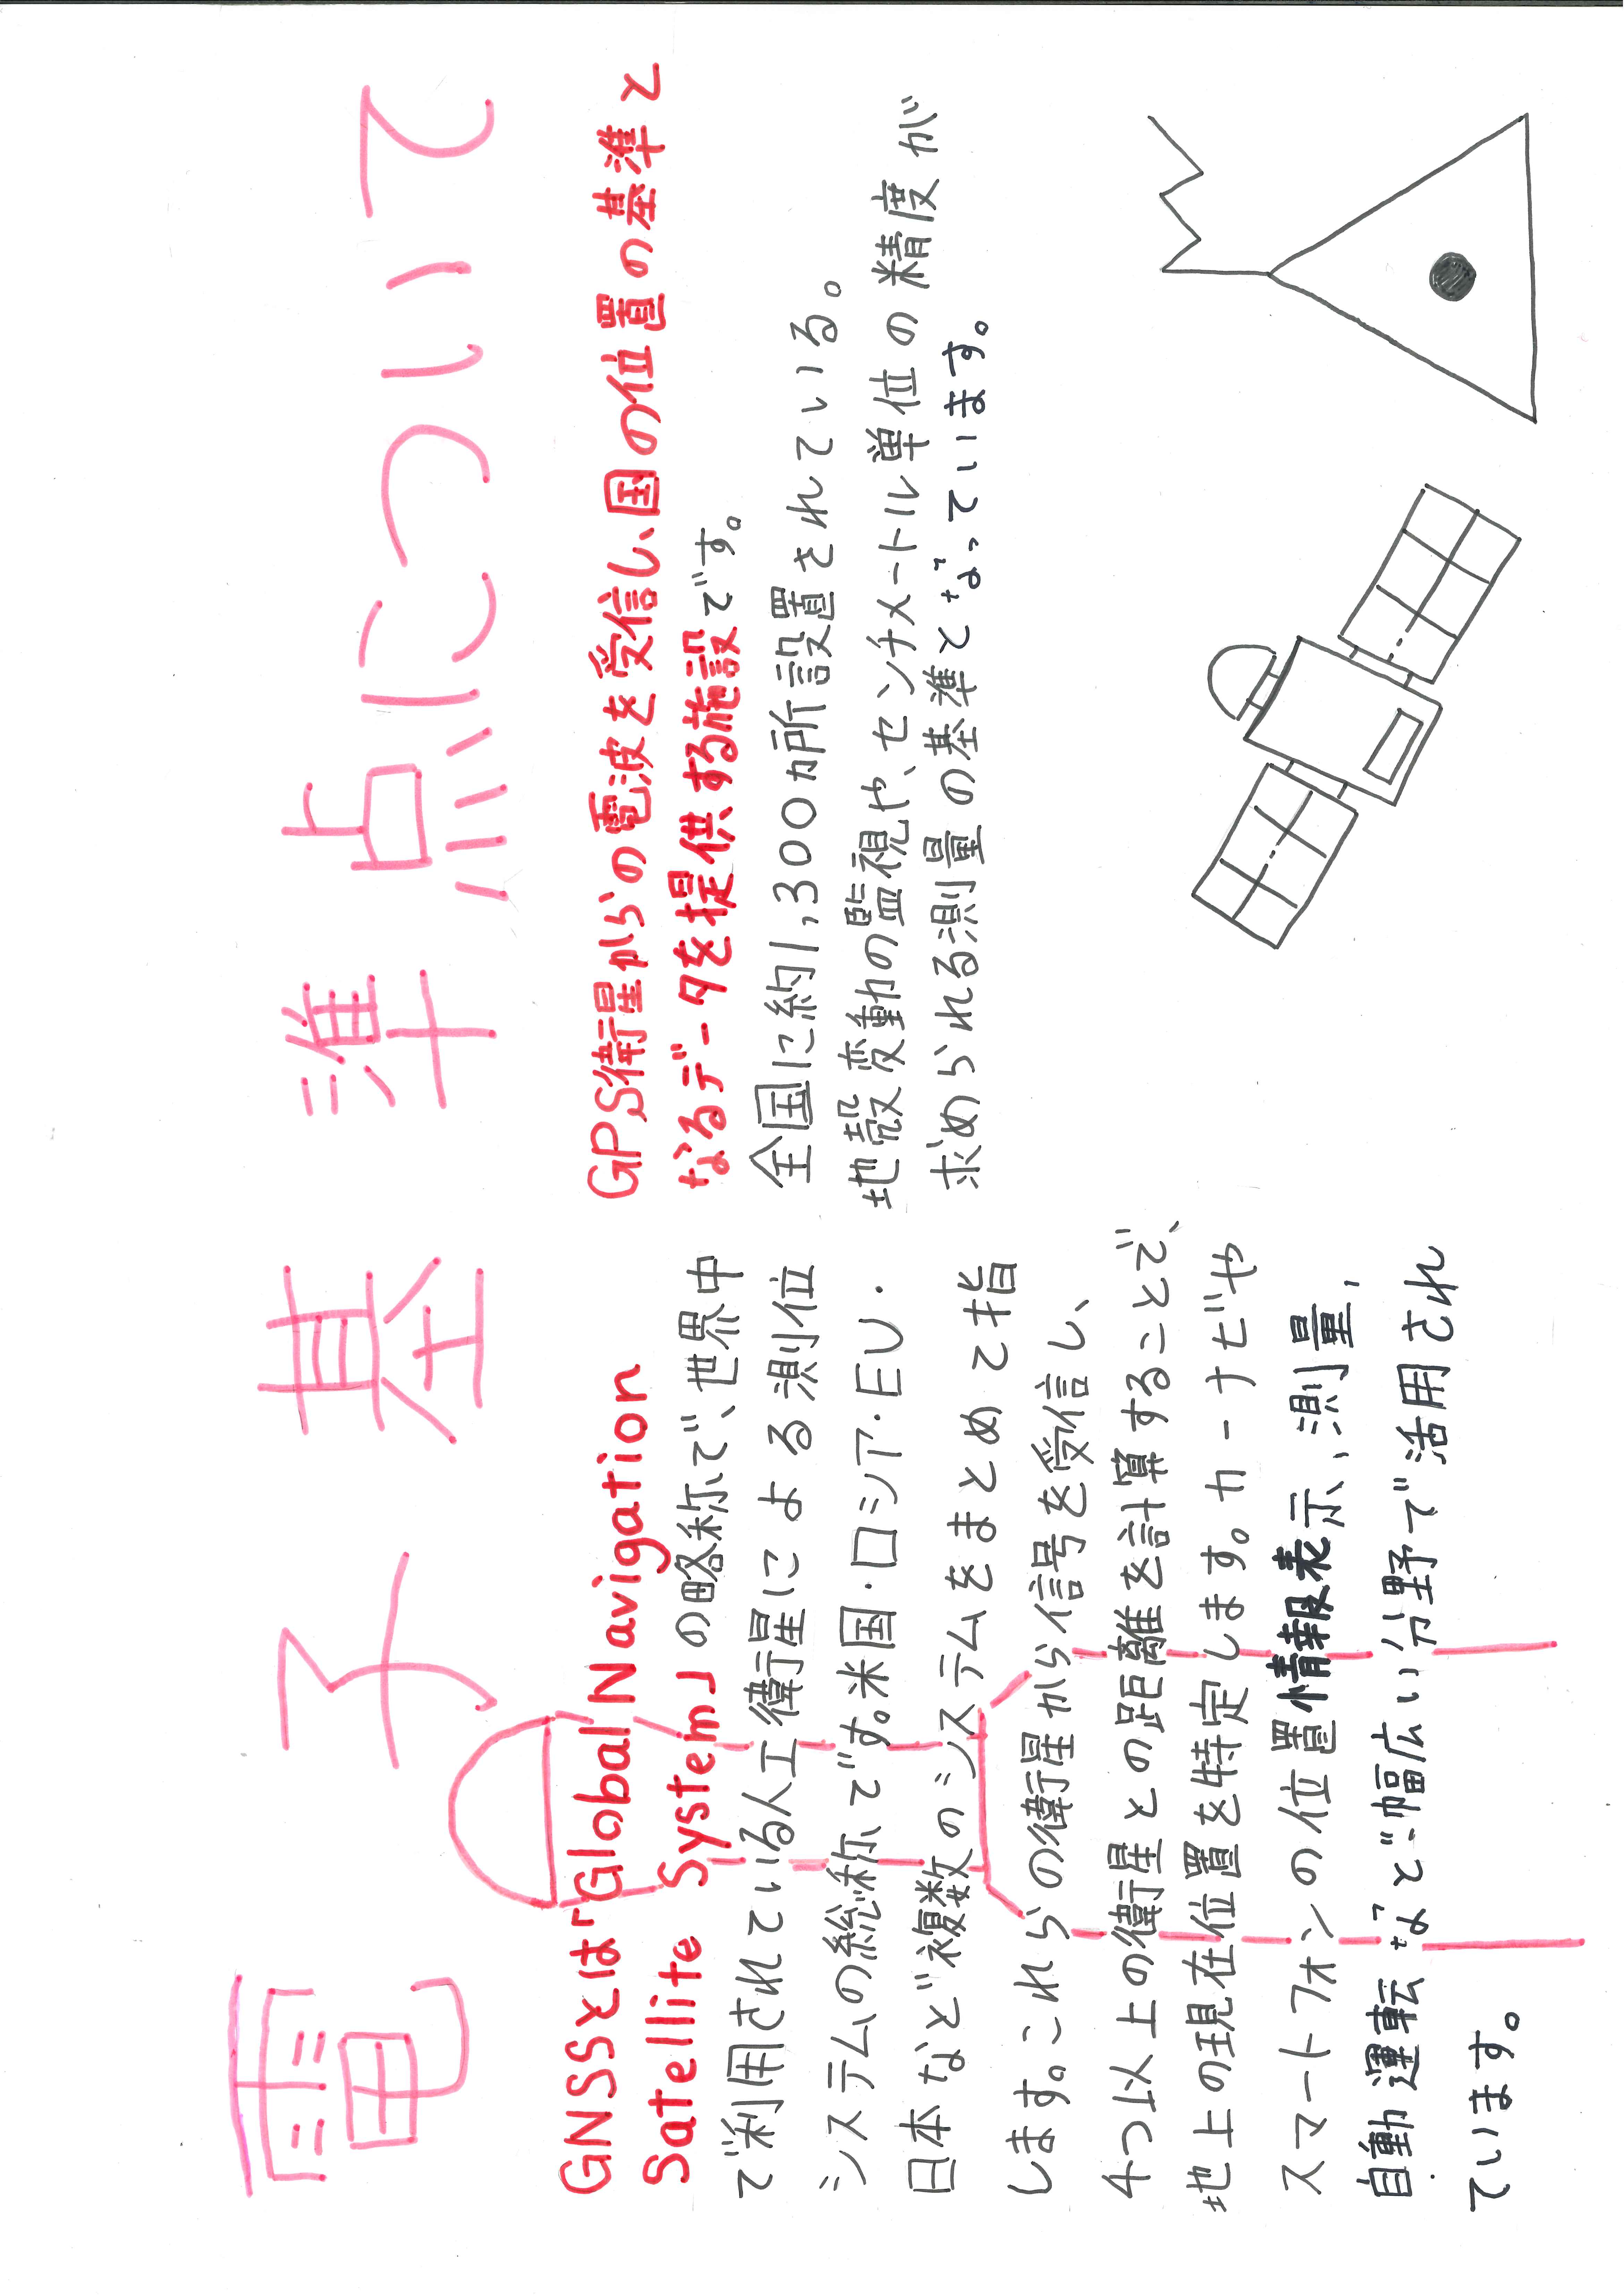 電子基準点について
GNSSとは「Global Navigation
Satellite System」の略称で、世界中
で利用されている人工衛星による測位
システムの総称です。米国・ロシア・EU・
日本など複数のシステムをまとめて指
します。これらの衛星から信号を受信し、
4つ以上の衛星との距離を計算することで、
地上の現在位置を特定します。カーナビや
スマートフォンの位置情報表示、測量、
自動運転など幅広い分野で活用され
ています。
GPS衛星からの電波を受信し、国の位置の基準と
なるデータを提供する施設です。
全国に約1,300ヵ所設置されている。
地殻変動の監視や、センチメートル単位の精度が
求められる測量の基準となっています。